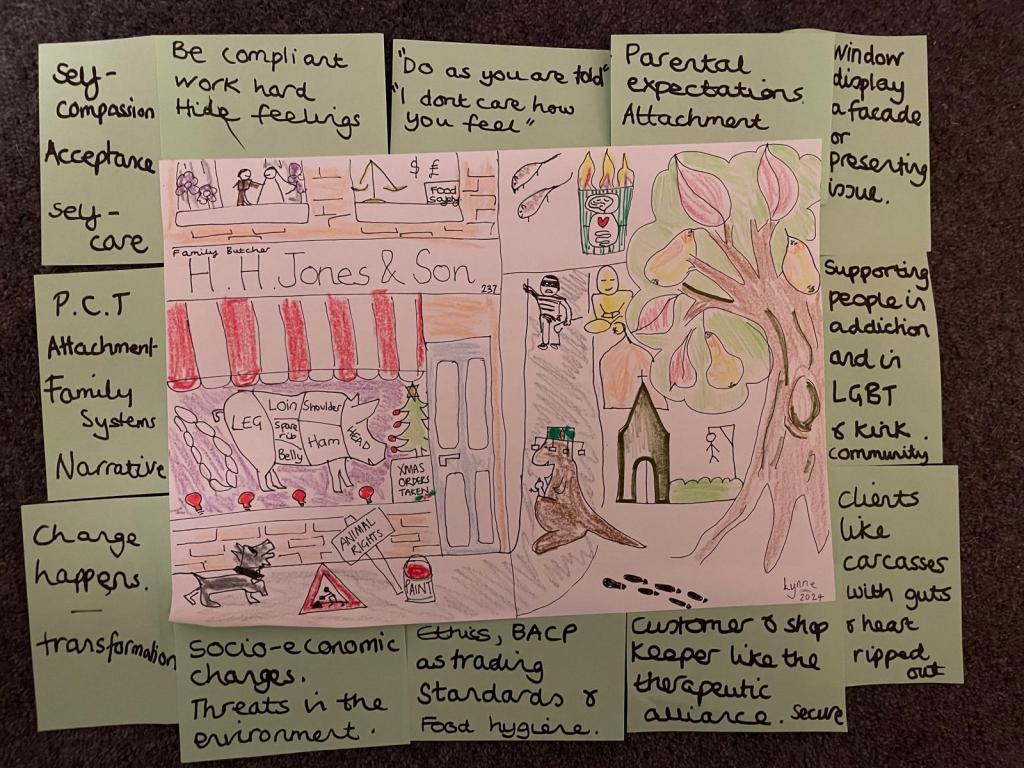 Self-
compassion
Acceptance
Self-
care
Be compliant
work hard
Hide feelings
"Do as you are told"
"I dont care how
you feel"
Parental
expectations.
Attachment
Window
display
a facade
or
presenting
issue.
P.C.T
Attachment
Family
Systems
Narrative
Supporting
people in
addiction
and in
LGBT
& kink.
community
Change
happens.
transformation
Clients
like
carcasses
with guts
& heart
ripped
out
Socio-economic
changes.
Threats in the
environment.
Ethics, BACP
as trading
Standards &
Food hygiene.
Customer & shop
Keeper like the
therapeutic
alliance. Secure
$ £
Food
safety
Family Butcher
H. H. Jones & Son
237
LEG
Loin
Shoulder
Spare
rib
Belly
Ham
HEAD
XMAS
ORDERS
TAKEN
ANIMAL
RIGHTS
PAINT
Lynne
2024